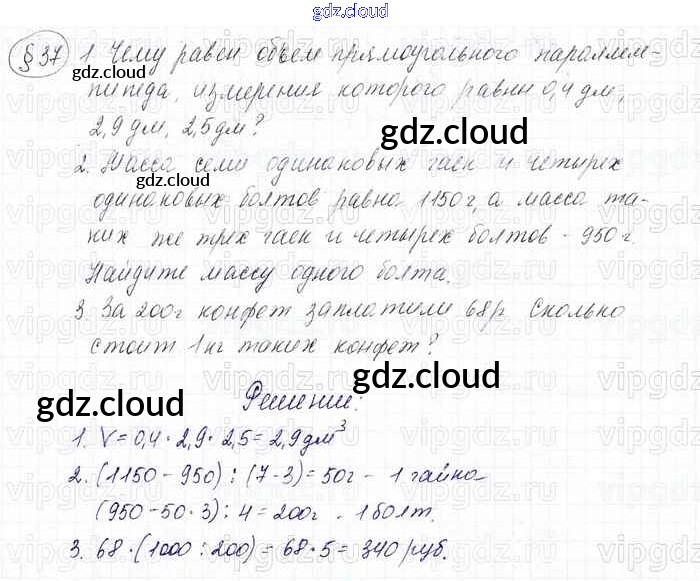 gdz.cloud
§37 1. Чему равен объем прямоугольного параллеле-
gdz.cloud
пипеда, измерения которого равны 0,4 дм,
2,9 дм, 2,5 дм?
gdz.cloud
2. Масса семи одинаковых гаек и четырех
gdz.cloud
одинаковых болтов равна 1150 г, а масса та-
ких же трех гаек и четырех болтов - 950 г.
Найдите массу одного болта.
3. За 200 г конфет заплатили 68 р. Сколько
стоит 1 кг таких конфет?
gdz.cloud
gdz.cloud
Решение:
1. V = 0,4 · 2,9 · 2,5 = 2,9 дм³
gdz.cloud
2. (1150 - 950) : (7 - 3) = 50 г - 1 гайка
(950 - 50 · 3) : 4 = 200 г - 1 болт.
3. 68 · (1000 : 200) = 68 · 5 = 340 руб.